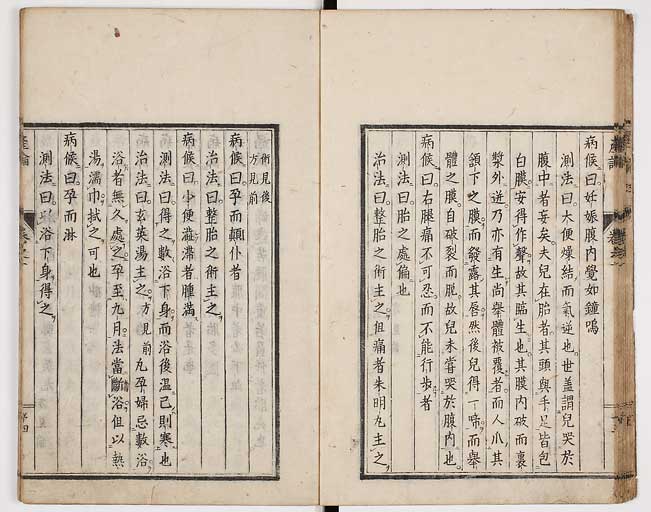 病候曰妊娠腹內覺如鐘鳴
測法曰大便燥結而氣逆也世蓋謂兒哭於
腹中者妄矣夫兒在胎者其頭與手足皆包
白膜安得作聲故其臨生也其膜內破而裹
漿外迸乃亦有生尚擧體被覆者而人爪其
頷下之膜而發露其唇然後兒得一啼而擧
體之膜自破裂而脫故兒未嘗哭於腹內也
病候曰右腿痛不可忍而不能行步者
測法曰胎之處偏也
治法曰整胎之術主之但痛者朱明丸主之
術見後
方見前
病候曰孕而顛仆者
治法曰整胎之術主之
病候曰小便澁滯者腫滿
測法曰得之數浴下身而浴後溫已則寒也
治法曰玄英湯主之方見前凡孕婦忌數浴
浴者無久處之孕至九月法當斷浴但以熱
湯濡巾拭之可也
病候曰孕而淋
測法曰浴下身得之
產論